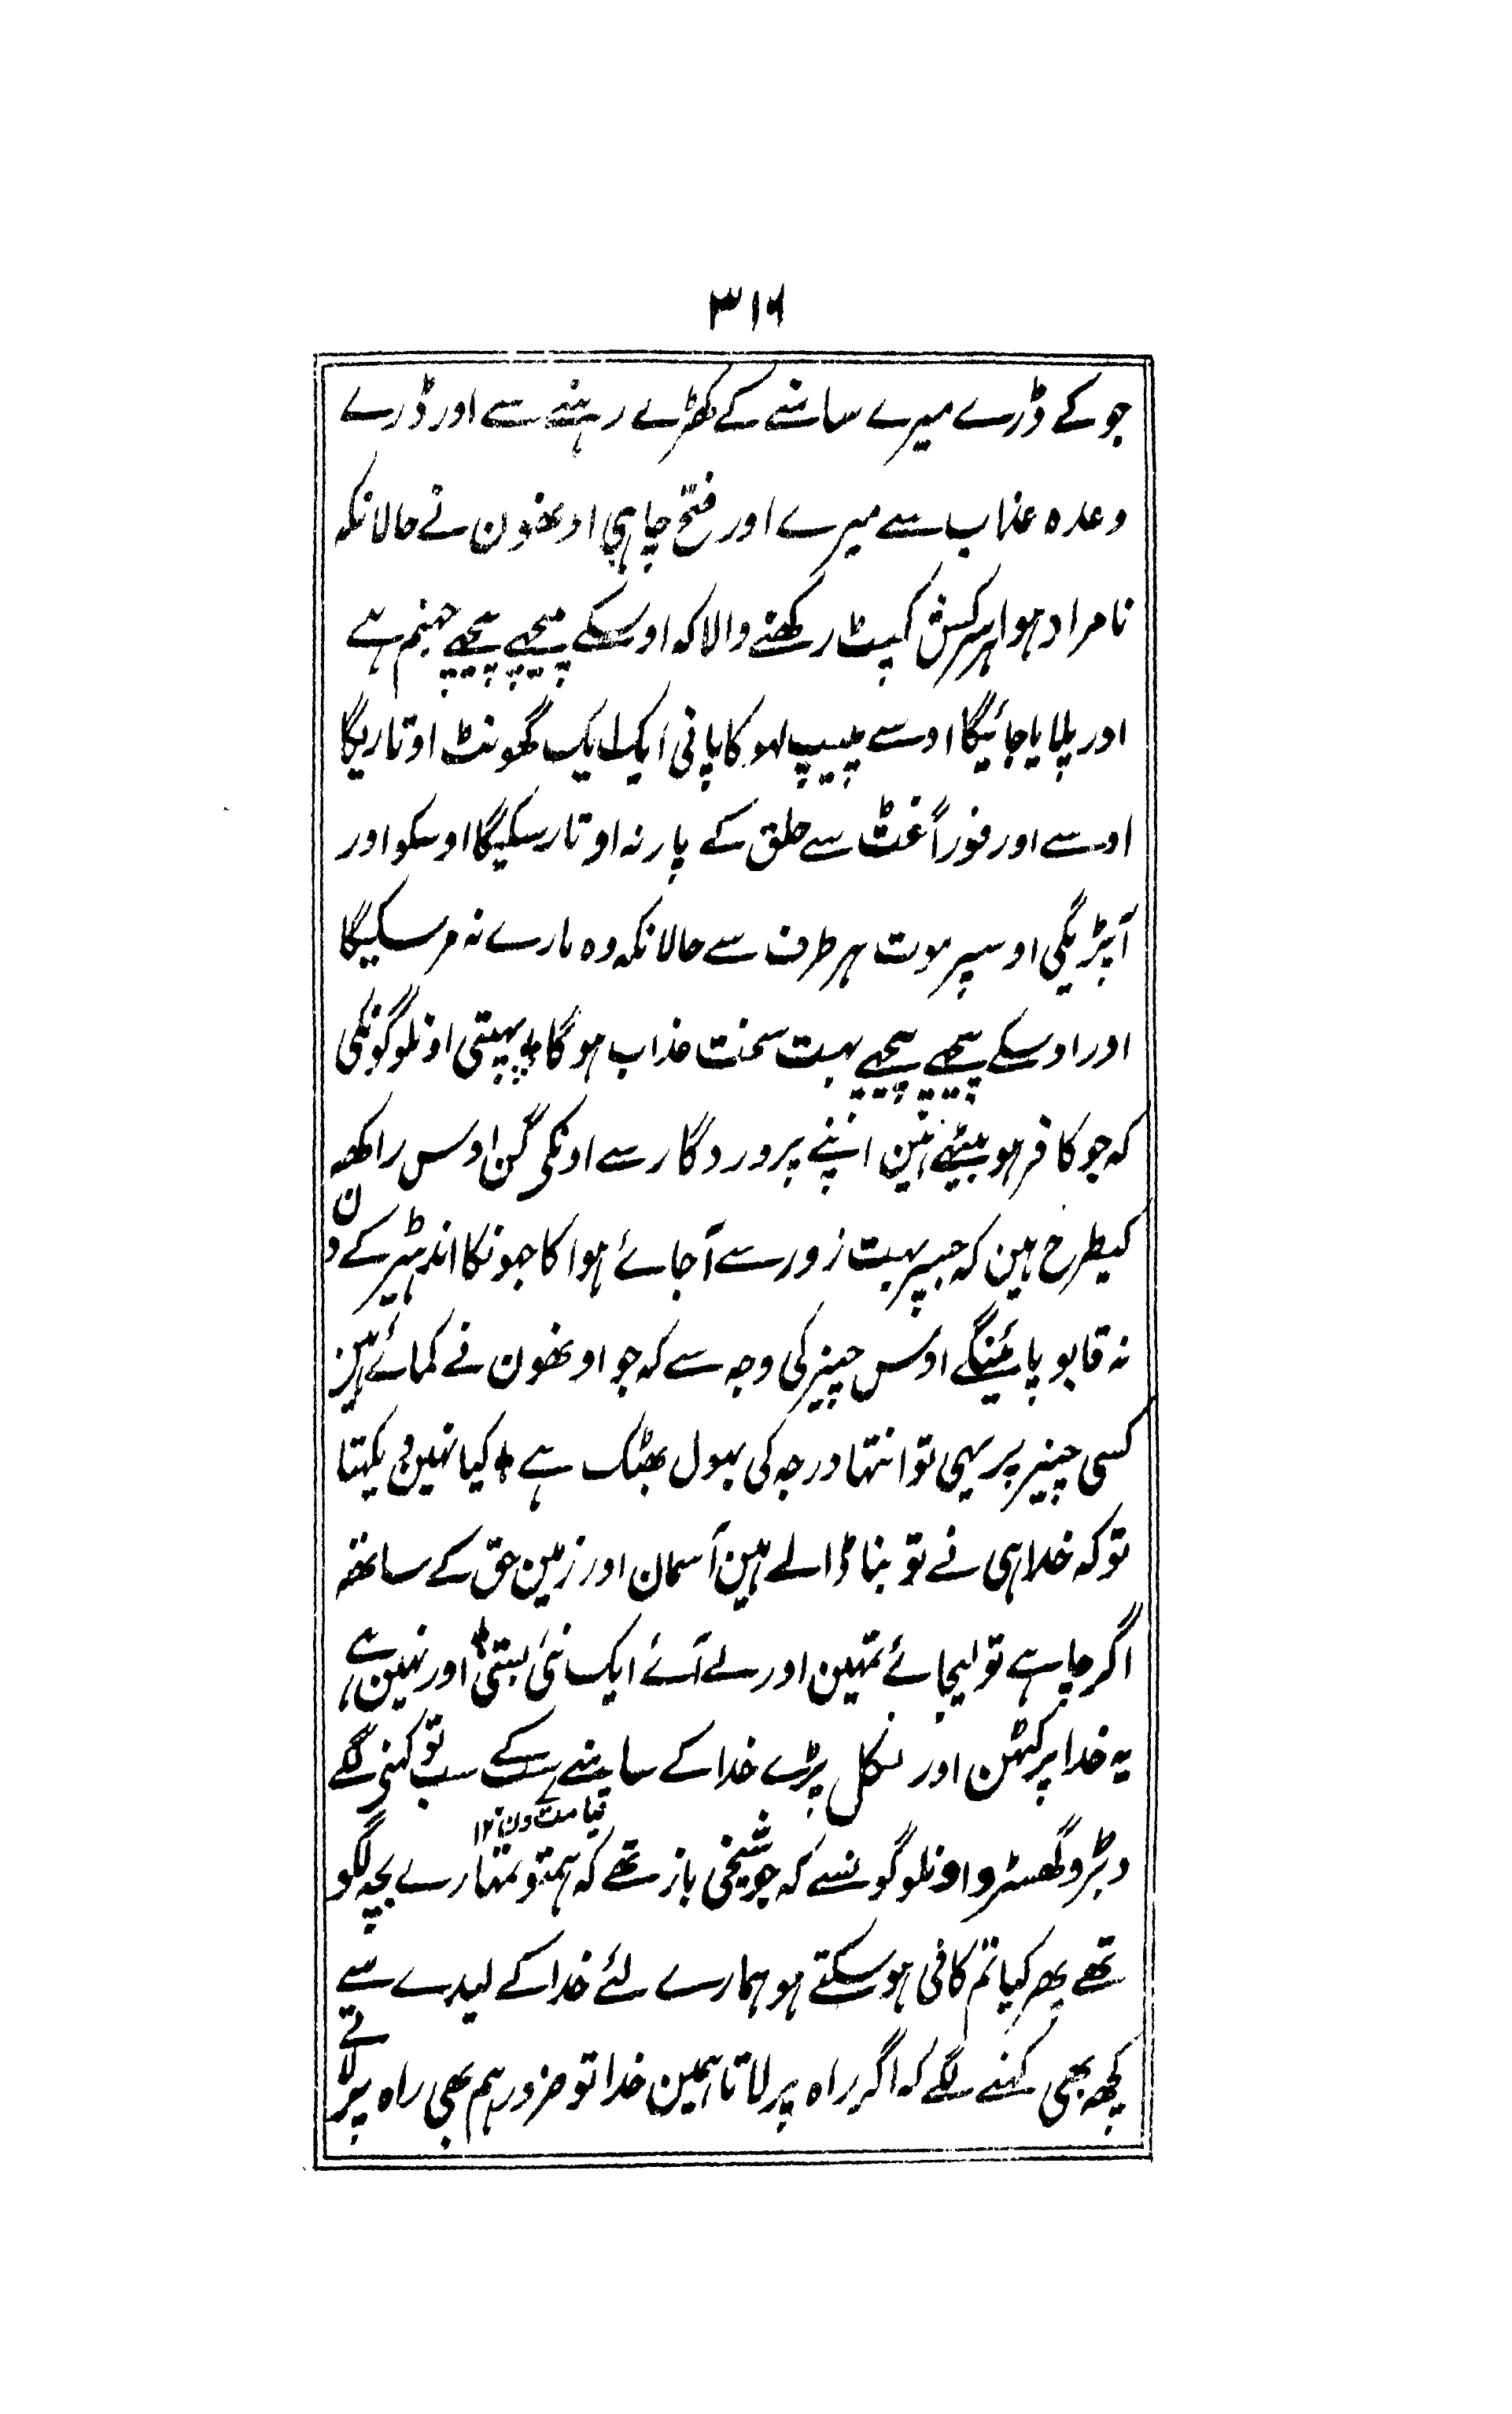 ۳۱۶
جو کے ڈرے میرے سامنے کے کھڑے رہنے سے اور ڈرے
وعدہ عذاب سے میرے اور فتح چاہی اونھون نے حالانکہ
نامراد ہوا ہر سرکش کپٹ رکھنے والا کہ اوسکے پیچھے پیچھے جہنم ہے
اور پلایا جائیگا اوسے پیپ لہو کا پانی ایک ایک گھونٹ اوتاریگا
اوسے اور فوراً غٹ سے حلق کے پار نہ اوتار سکیگا اوسکو اور
آپڑیگی اوسپر موت ہر طرف سے حالانکہ وہ مارے نہ مر سکیگا
اور اوسکے پیچھے پیچھے بہت سخت عذاب ہوگا پہبتی اونلوگونکی
کہ جو کافر ہو بیٹھے ہین اپنے پروردگار سے اونکی گن اوس راکھہ
کیطرح ہین کہ جسپر بہت زور سے آجائے ہوا کا جھونکا اندہیر کے دن
نہ قابو پائینگے اوس چیز کی وجہ سے کہ جو اونھون نے کمائے ہین
کسی چیز پر یہی تو انتہا درجہ کی بہول بھٹک ہے کیا نہین دیکہتا
تو کہ خدا ہی نے تو بنا ڈالے ہین آسمان اور زمین حق کے ساتھہ
اگر چاہے تو لیجائے تمہین اور لے آئے ایک نئی بستی اور نہین ہے
یہ خدا پر کٹھن اور نکل پڑے خدا کے سامنے سب کے سب تو کہنی لگے
قیامت دن ۱۲
دبڑو گھسڑو اونلوگونسے کہ جو شیخی باز تھے کہ ہمتو تمہارے پچھ لگو
تھے پھر کیا تم کافی ہو سکتے ہو ہمارے لئے خدا کے لیدے سے
کچھہ بھی کہنے لگے کہ اگر راہ پر لاتا ہمین خدا تو ضرور ہم بھی راہ پر لاتے